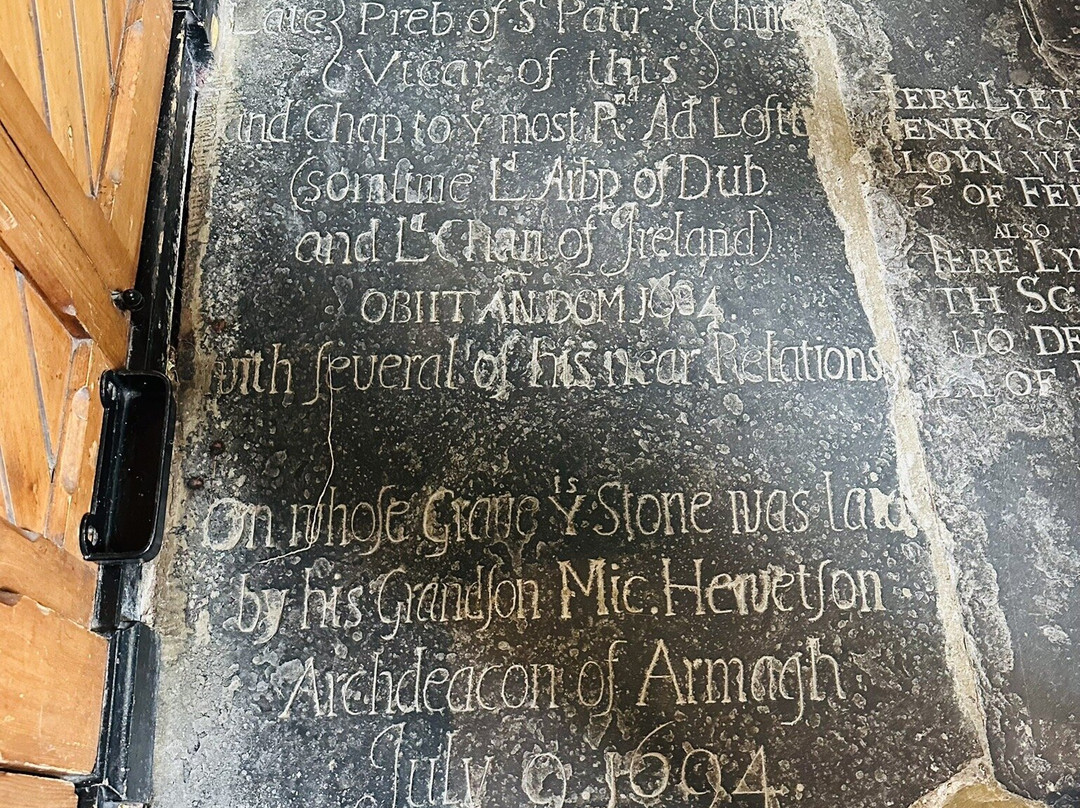 Late Preb. of St Patrs Church
Vicar of this
and Chap to ye most Rnd Ad Loftu
(somtime Ld Arbp of Dub.
and Ld Chan. of Ireland)
OBIIT AN. DOM
with ſeueral of his near Relations
On whoſe Graue Yis Stone was laid
by his Grandſon Mic. Hewetſon
Archdeacon of Armagh
July 9. 1694
HERE LYET
HENRY SCA
CLOYN WH
3D OF FE
ALSO
HERE LY
TH SC
DE
OF